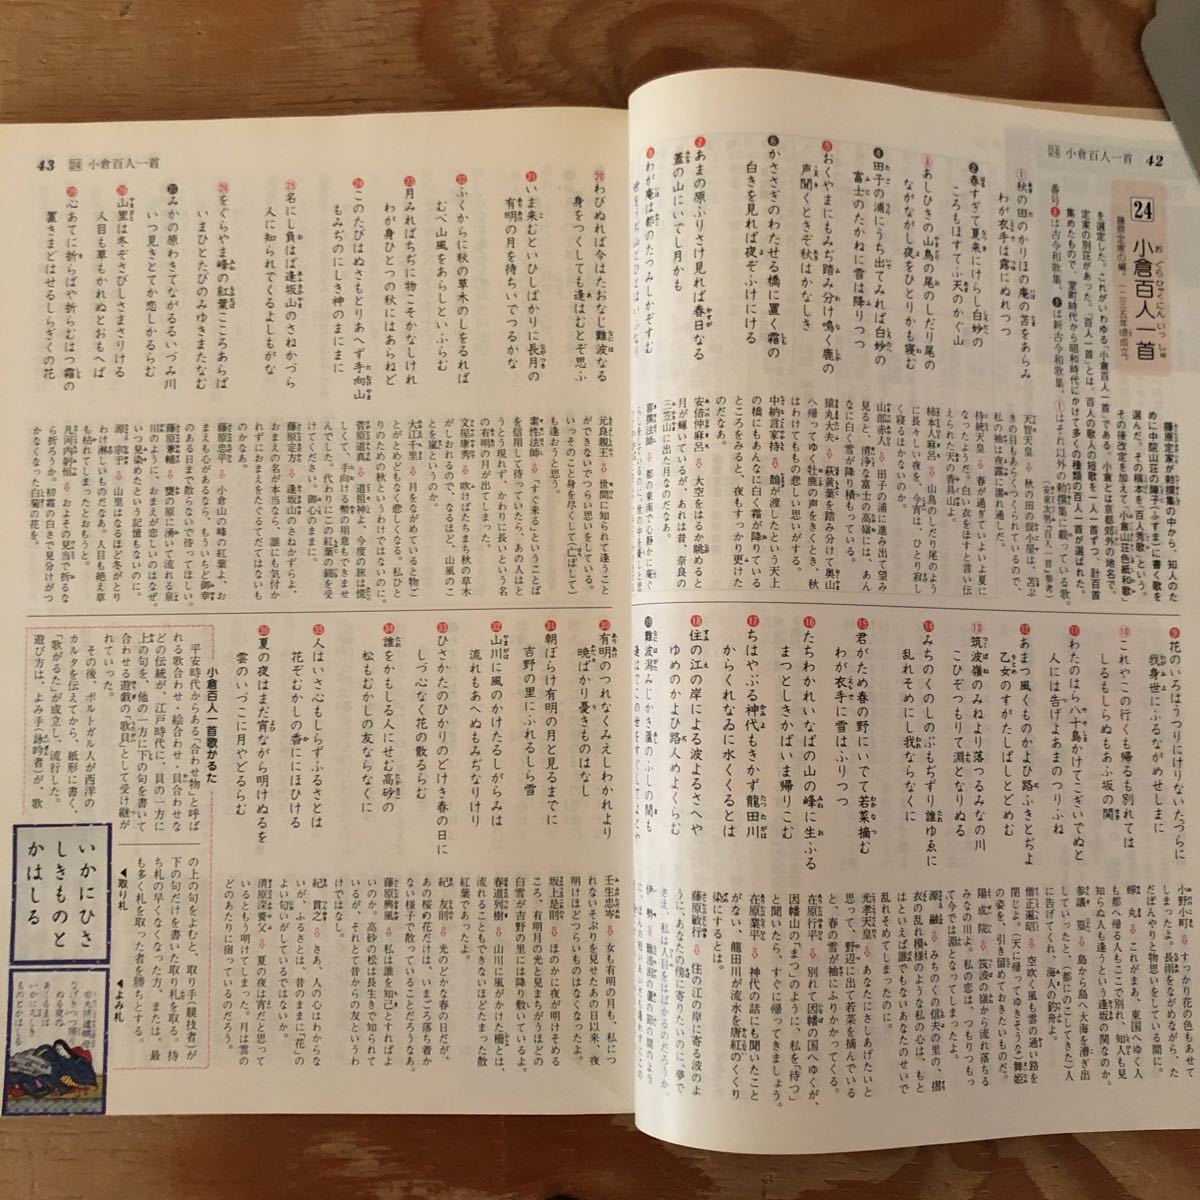 24 小倉百人一首 42
24 小倉百人一首
藤原定家の編。一二三五年頃成立。
藤原定家が勅撰集の中から、知人のた
めに中院山荘の障子(ふすま)に書く歌を
選んだ。その稿本を「百人秀歌」という。
その後改定を加えて「小倉山荘色紙和歌」
を選定した。これがいわゆる「小倉百人一首」である。小倉とは京都郊外の地名で、
定家の別荘があった。「百人一首」とは、百人の歌人の短歌を一人一首ずつ、計百首
集めたもので、室町時代から昭和時代にかけて多くの種類の百人一首が選ばれた。
1 秋の田のかりほの庵の苫をあらみ
わが衣手は露にぬれつつ
2 春すぎて夏来にけらし白妙の
ころもほすてふ天のかぐ山
3 あしひきの山鳥の尾のしだり尾の
ながながし夜をひとりかも寝む
4 田子の浦にうち出てみれば白妙の
富士のたかねに雪は降りつつ
5 おくやまにもみぢ踏み分け鳴く鹿の
声聞くときぞ秋はかなしき
6 かささぎのわたせる橋に置く霜の
白きを見れば夜ぞふけにける
7 あまの原ふりさけ見れば春日なる
三笠の山にいでし月かも
8 わが庵は都のたつみしかぞすむ
天智天皇⇩秋の田の仮小屋は、苫ぶ
きの目もあらくつくられているので、
私の袖は夜露に濡れ通しだ。
持統天皇⇩春が過ぎていよいよ夏に
なったようだ。白い衣をほすと言い伝
えられた天の香具山よ。
柿本人麻呂⇩山鳥のしだり尾のよう
に長々しい夜を、今宵は、ひとり寂し
く寝るほかないのか。
山部赤人⇩田子の浦に進み出て望み
見ると、清浄な富士の高嶺には、あん
なに白く雪が降り積もっている。
猿丸大夫⇩萩黄葉を踏み分けて奥山
へ帰ってゆく牡鹿の声をきくとき、秋
はわけてももの悲しい思いがする。
中納言家持⇩鵲が渡したという天上
の橋にもあんなに白く霜が降りている
ところをみると、夜もすっかり更けた
のだなあ。
安倍仲麻呂⇩な大空をはるか眺めると
月が輝いているが、あれは昔、奈良の
三笠山に出た月なのだなあ。
9 花のいろはうつりにけりないたづらに
我身世にふるながめせしまに
10 これやこの行くも帰るも別れては
しるもしらぬもあふ坂の関
11 わたのはら八十島かけてこぎいでぬと
人には告げよあまのつりふね
12 あまつ風くものかよひ路ふきとぢよ
乙女のすがたしばしとどめむ
13 筑波嶺のみねより落つるみなの川
こひぞつもりて淵となりぬる
14 みちのくのしのぶもぢずり誰ゆゑに
乱れそめにし我ならなくに
15 君がため春の野にいでて若菜摘む
わが衣手に雪はふりつつ
16 たちわかれいなばの山の峰に生ふる
まつとしきかばいま帰りこむ
17 ちはやぶる神代もきかず龍田川
からくれなゐに水くくるとは
18 住の江の岸による波よるさへや
ゆめのかよひ路人めよくらむ
19 難波潟みじかき蘆のふしの間も
小野小町⇩すっかり花の色もあせて
しまったよ。長雨をながめながら、た
だぼんやりと物思いをしている間に。
蟬丸⇩これがまあ、東国へゆく人
も都へ帰る人もここで別れ、知人も見
知らぬ人も逢うという逢坂の関なのか。
参議篁⇩島から島へ大海を漕ぎ出
していったと、(都にのこしてきた)人
に告げてくれ、海人の釣舟よ。
僧正遍昭⇩空吹く風も雲の通い路を
閉じよ。(天に帰ってゆきそうな)舞姫
の姿を、引き留めておきたいから。
陽成院⇩筑波の嶺から流れ落ちる
みなの川よ。私の恋は、つもりつもっ
て今では淵となってしまったよ。
源融⇩みちのくの信夫の里の、摺
衣の乱れ模様のような私の心は、もと
はといえば誰でもないあなたのせいで
乱れそめてしまったのに。
光孝天皇⇩あなたにさしあげたいと
思って、野辺に出て若菜を摘んでいる
と、春の雪が袖にふりかかってくる。
在原行平⇩別れて因幡の国へゆくが、
因幡山の「まつ」のように、私を「待つ」
と聞いたら、すぐに帰ってきましょう。
在原業平⇩神代の話にも聞いたこと
がない、龍田川が流水を唐紅のくくり
染にするとは。
藤原敏行⇩住の江の岸に寄る波のよ
うに、あなたの傍に寄りたいのに、夢で
43 24 小倉百人一首
20 わびぬれば今はたおなじ難波なる
身をつくしても逢はむとぞ思ふ
21 いま来むといひしばかりに長月の
有明の月を待ちいでつるかな
22 ふくからに秋の草木のしをるれば
むべ山風をあらしといふらむ
23 月みればちぢに物こそかなしけれ
わが身ひとつの秋にはあらねど
24 このたびはぬさもとりあへず手向山
もみぢのにしき神のまにまに
25 名にし負はば逢坂山のさねかづら
人に知られでくるよしもがな
26 をぐらやま峰の紅葉こころあらば
いまひとたびのみゆきまたなむ
27 みかの原わきてながるるいづみ川
いつ見きとてか恋しかるらむ
28 山里は冬ぞさびしさまさりける
人目も草もかれぬとおもへば
29 心あてに折らばや折らむはつ霜の
置きまどはせるしらぎくの花
元良親王⇩世間に知られて逢うこと
ができないでつらい思いをしている。
いっそのこと身を尽くして(亡ぼして)
も逢おうと思う。
素性法師⇩「すぐ来る」ということば
を信用して待っていたら、あの人はと
うとう現れず、かわりに長いという名
の有明の月が出てしまった。
文屋康秀⇩吹けばたちまち秋の草木
がしおれるので、なるほど、山風のこ
とを嵐というのか。
大江千里⇩月をながめていると物ご
とがとめどもなく悲しくなる。私ひと
りのための秋というわけではないのに。
菅原道真⇩道祖神よ、今度の旅は慌
しくて、手向ける幣の用意もできませ
んでした。代わりにこの紅葉の錦を受
けてください。御心のままに。
藤原定方⇩逢坂山のさねかずらよ、
おまえの名が本当なら、誰にも気付か
れずにおまえをたぐるてだてはないも
のかなあ。
藤原忠平⇩小倉山の峰の紅葉よ、お
まえも心があるなら、もういちど御幸
のある日まで散らないで待ってほしい。
藤原兼輔⇩甕の原に湧いて流れる泉
川のように、おまえが恋しいのはなぜ。
いつ見染めたという記憶もないのに。
源宗于⇩山里はなるほど冬がとり
わけ淋しいものだなあ。人目も絶え草
も枯れてしまったとおもうと。
凡河内躬恒⇩およその見当で折るな
ら折ろうか。初霜の白さで見分けがつ
かなくなった白菊の花を。
30 有明のつれなくみえしわかれより
暁ばかり憂きものはなし
31 朝ぼらけ有明の月と見るまでに
吉野の里にふれるしら雪
32 山川に風のかけたるしがらみは
流れもあへぬもみぢなりけり
33 ひさかたのひかりのどけき春の日に
しづ心なく花の散るらむ
34 誰をかもしる人にせむ高砂の
松もむかしの友ならなくに
35 人はいさ心もしらずふるさとは
花ぞむかしの香ににほひける
36 夏の夜はまだ宵ながら明けぬるを
雲のいづこに月やどるらむ
壬生忠岑⇩女も有明の月も、私につ
れないそぶりを見せたあの日以来、夜
明けほどつらいものはなくなったよ。
坂上是則⇩ほのかに夜が明けそめる
ころ、有明月の光と見まちがうほどの
白雪が吉野の里には降り敷いているよ。
春道列樹⇩山川に風がかけた柵とは、
流れることもできないほどたまった散
紅葉であったよ。
紀友則⇩光のどかな春の日だが、
あの桜の花だけは、いまごろ落ち着か
ない様子で散っていることだろうなあ。
藤原興風⇩私は誰を知己とすれば
いのか。高砂の松は長生きで知られて
いるが、それとて昔からの友というわ
けではなし。
紀貫之⇩さあ、人の心はわからな
いが、ふるさとは、昔のままに「花」の
よい匂いがしているではないか。
清原深養父⇩夏の夜は宵だと思って
いるともう明けてしまった。月は雲の
どのあたりに宿っているのだろう。
小倉百人一首歌がるた
平安時代からある「合わせ物」と呼ば
れる歌合わせ・絵合わせ・貝合わせな
どの伝統が、江戸時代に、貝の一方に
上の句を、他の一方に下の句を書いて
合わせる遊戯の「歌貝」として受け継が
れていった。
その後、ポルトガル人が西洋の
カルタを伝えてから、紙形に書く、
「歌がるた」が成立し、流行した。
遊び方は、よみ手(詠吟者)が、歌
の上の句をよむと、取り手(競技者)が
下の句だけを書いた取り札を取る。持
ち札の早くなくなった方、または、最
も多く札を取った者を勝ちとする。
▲取り札
▲よみ札
いかにひさ
しきものと
かはしる